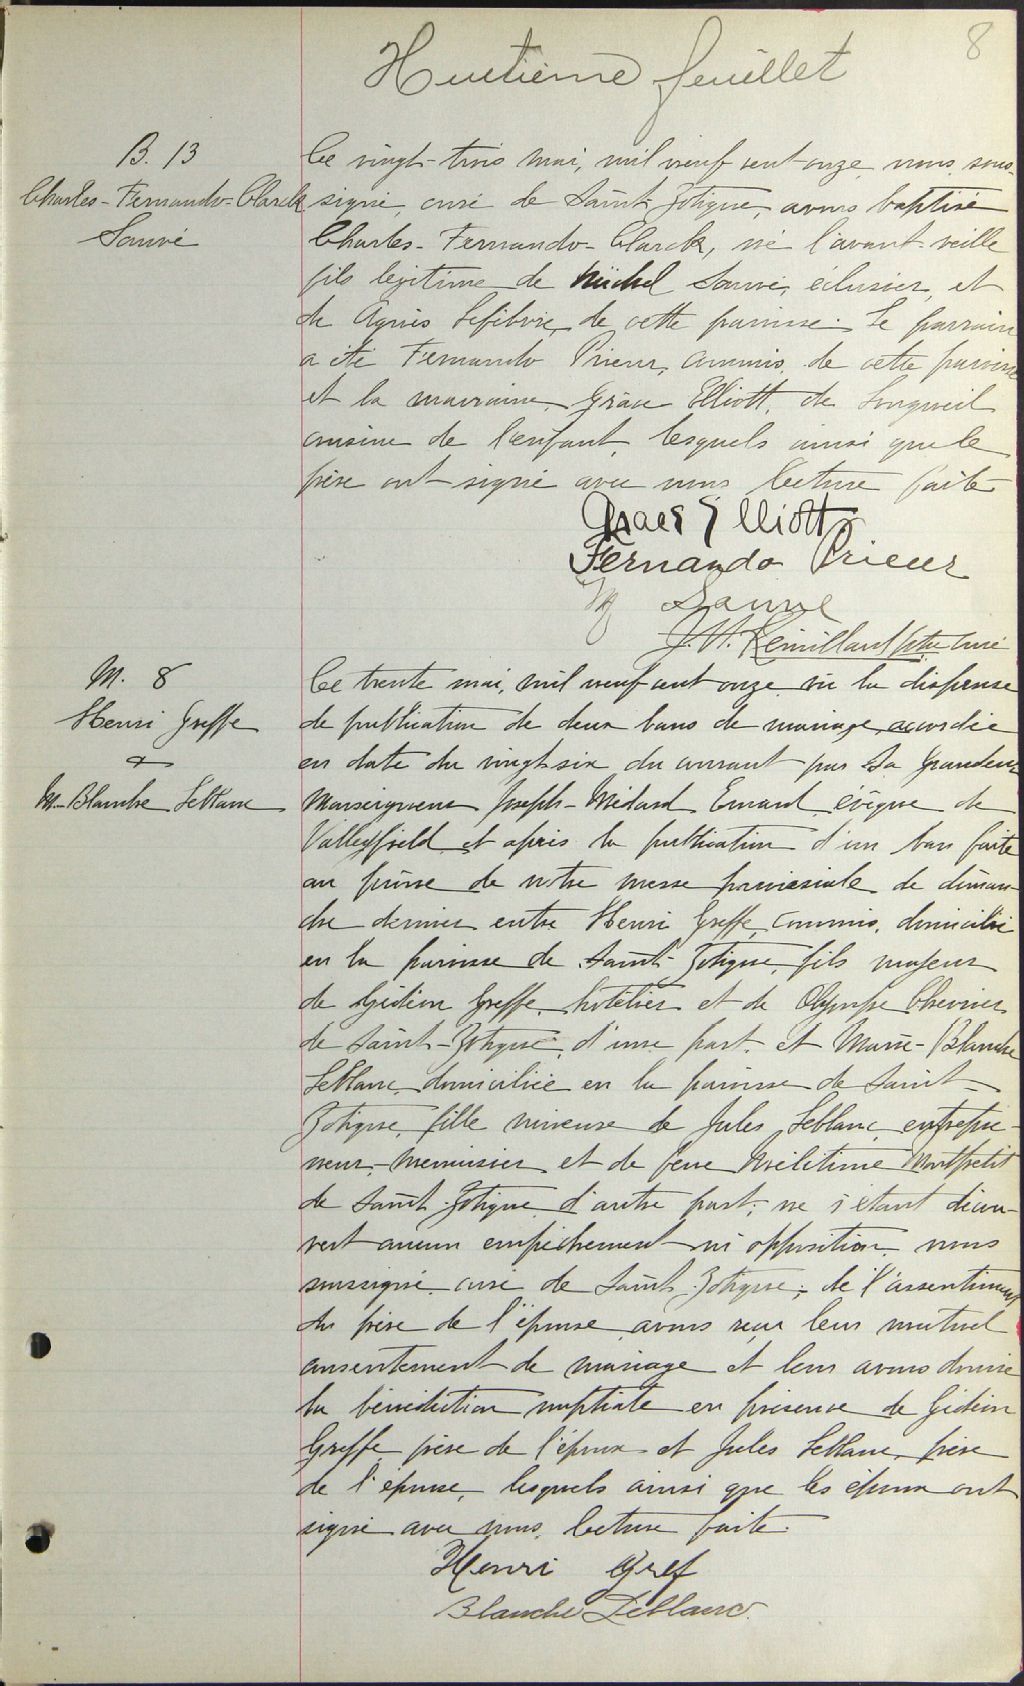 8
Huitième feuillet
B. 13
Charles-Fernando-Clarck
Sauvé
Ce vingt-trois mai, mil neuf cent onze, nous, sous-
signé, curé de Saint-Zotique, avons baptisé
Charles-Fernando-Clarck, né l'avant-veille
fils légitime de Michel Sauvé, éclusier, et
de Agnès Lefebvre, de cette paroisse. Le parrain
a été Fernando Prieur, commis, de cette paroisse
et la marraine, Grâce Elliott, de Longueil
cousine de l'enfant, lesquels ainsi que le
père ont signé avec nous. Lecture faite
Grace Elliott
Fernando Prieur
M Sauvé
J. A. Remillard ptre curé
M. 8
Henri Greffe
&
M-Blanche Leblanc
Ce trente mai, mil neuf cent onze, vu la dispense
de publication de deux bans de mariage, accordée
en date du vingt-six du courant par Sa Grandeur
Monseigneur Joseph-Médard Emard, évêque de
Valleyfield, et après la publication d'un ban faite
au prône de notre messe paroissiale de diman-
che dernier entre Henri Greffe, commis, domicilié
en la paroisse de Saint-Zotique, fils majeur
de Gédéon Greffe, hôtelier et de Olympe Chevrier
de Saint-Zotique, d'une part, et Marie-Blanche
Leblanc, domiciliée en la paroisse de Saint-
Zotique, fille mineure de Jules Leblanc, entrepre-
neur-menuisier et de feue Mélitime Montpetit
de Saint-Zotique, d'autre part; ne s'étant décou-
vert aucun empêchement ni opposition, nous
soussigné, curé de Saint-Zotique, de l'assentiment
du père de l'épouse, avons reçu leur mutuel
consentement de mariage et leur avons donné
la bénédiction nuptiale en présence de Gédéon
Greffe, père de l'époux et Jules Leblanc, père
de l'épouse, lesquels ainsi que les époux ont
signé avec nous. Lecture faite.
Henri Gref
Blanche Leblanc.